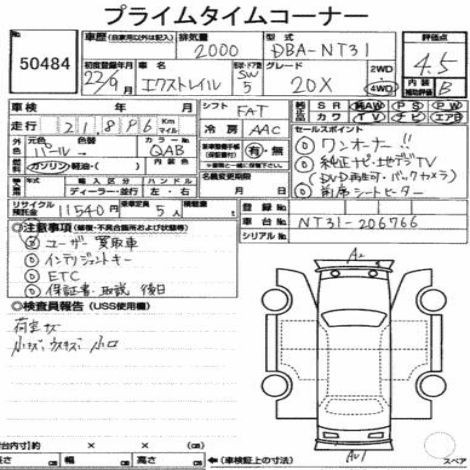 プライムタイムコーナー
50484
車歴 (自家用以外は記入) 排気量 2000 型式 DBA-NT31 評価点 4.5
初度登録年月 22/9 車名 エクストレイル 形状・ドア数 SW 5 グレード 20X 2WD 4WD 内装補助評価 B
車検 年 月 シフト FAT 純正品 SR 純AW PS PW
走行 21,896 Km マイル 冷房 AAC カワ TV ナビ エアB
外色 元色 パール 色替 カラーNo. QAB 新車整備手帳(保証書付) 有・無 セールスポイント
燃料 ガソリン・軽油・( ) 内装色 ① ワンオーナー!!
車輌 年式 輸入区分 ディーラー・並行 ハンドル 左・右 名義変更期限 月 日 ② 純正ナビ・地デジTV
(DVD再生可・バックカメラ)
③ 前席シートヒーター
リサイクル預託金 11540円 乗車定員 5人 登録No.
◎注意事項 (修復・不具合箇所および状態等) 車台No. NT31-206766
シリアルNo.
ユーザー買取車
インテリジェントキー
ETC
保証書・取説 後日
◎検査員報告 (USS使用欄)
荷室キズ
小キズ 小凹
A2
A1
荷台内寸(約) × × (cm)
長さ cm 幅 cm 高さ cm ←(車検証上の寸法)
スペア